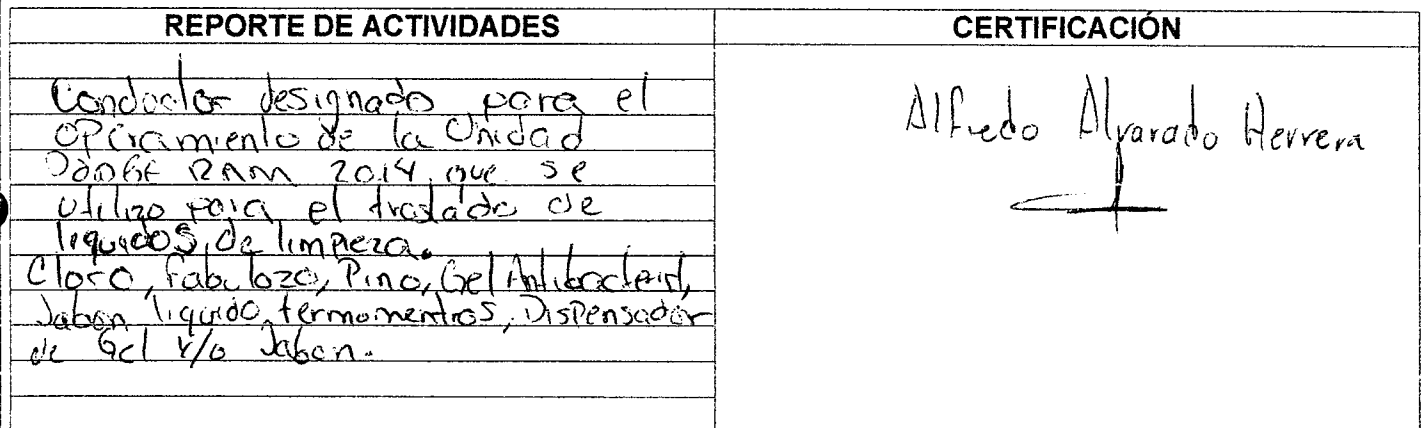 REPORTE DE ACTIVIDADES
Conductor designado para el
operamiento de la Unidad
DODGE RAM 2014 que se
utilizo para el traslado de
liquidos de limpieza.
Cloro, Fabulozo, Pino, Gel Antibacterial,
Jabon liquido, termomentros, Dispensador
de Gel y/o Jabon.
CERTIFICACIÓN
Alfredo Alvarado Herrera